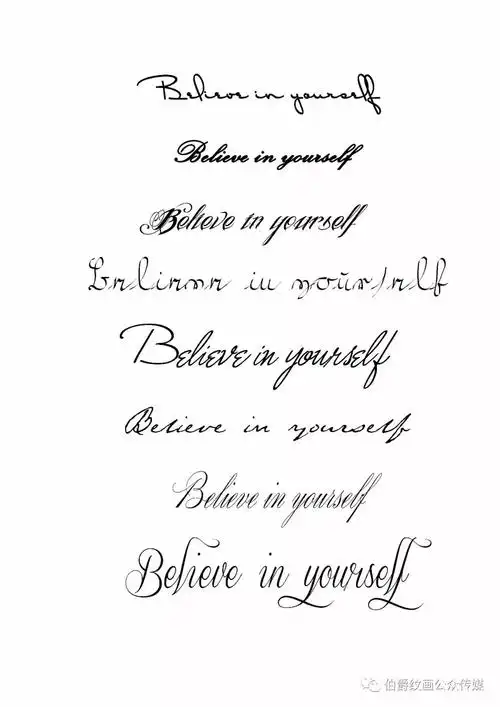 Believe in yourself
Believe in yourself
Believe in yourself
Believe in yourself
Believe in yourself
Believe in yourself
Believe in yourself
Believe in yourself
伯爵纹画公众传媒